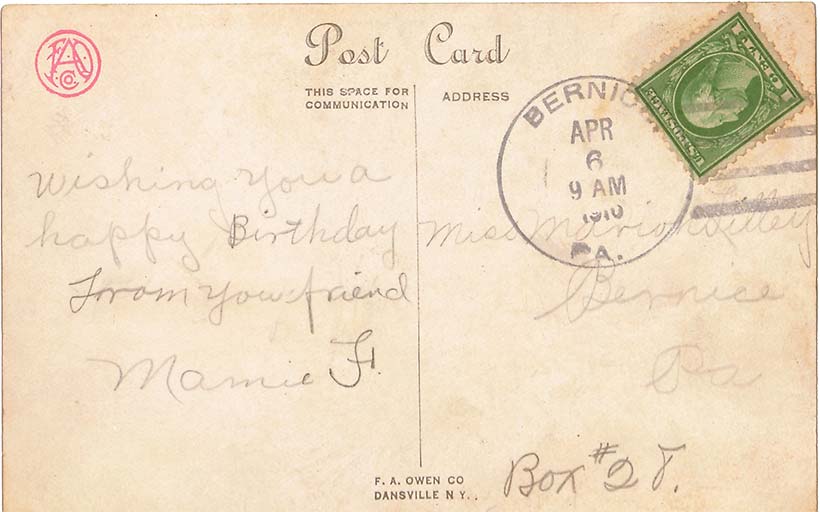 Post Card
THIS SPACE FOR
COMMUNICATION
ADDRESS
BERNIC
APR
6
9 AM
1910
PA.
U.S. POSTAGE
Wishing you a
happy Birthday
From your friend
Mamie F.
Miss Marion
Bernice
Pa
Box #28.
F. A. OWEN CO
DANSVILLE N Y..